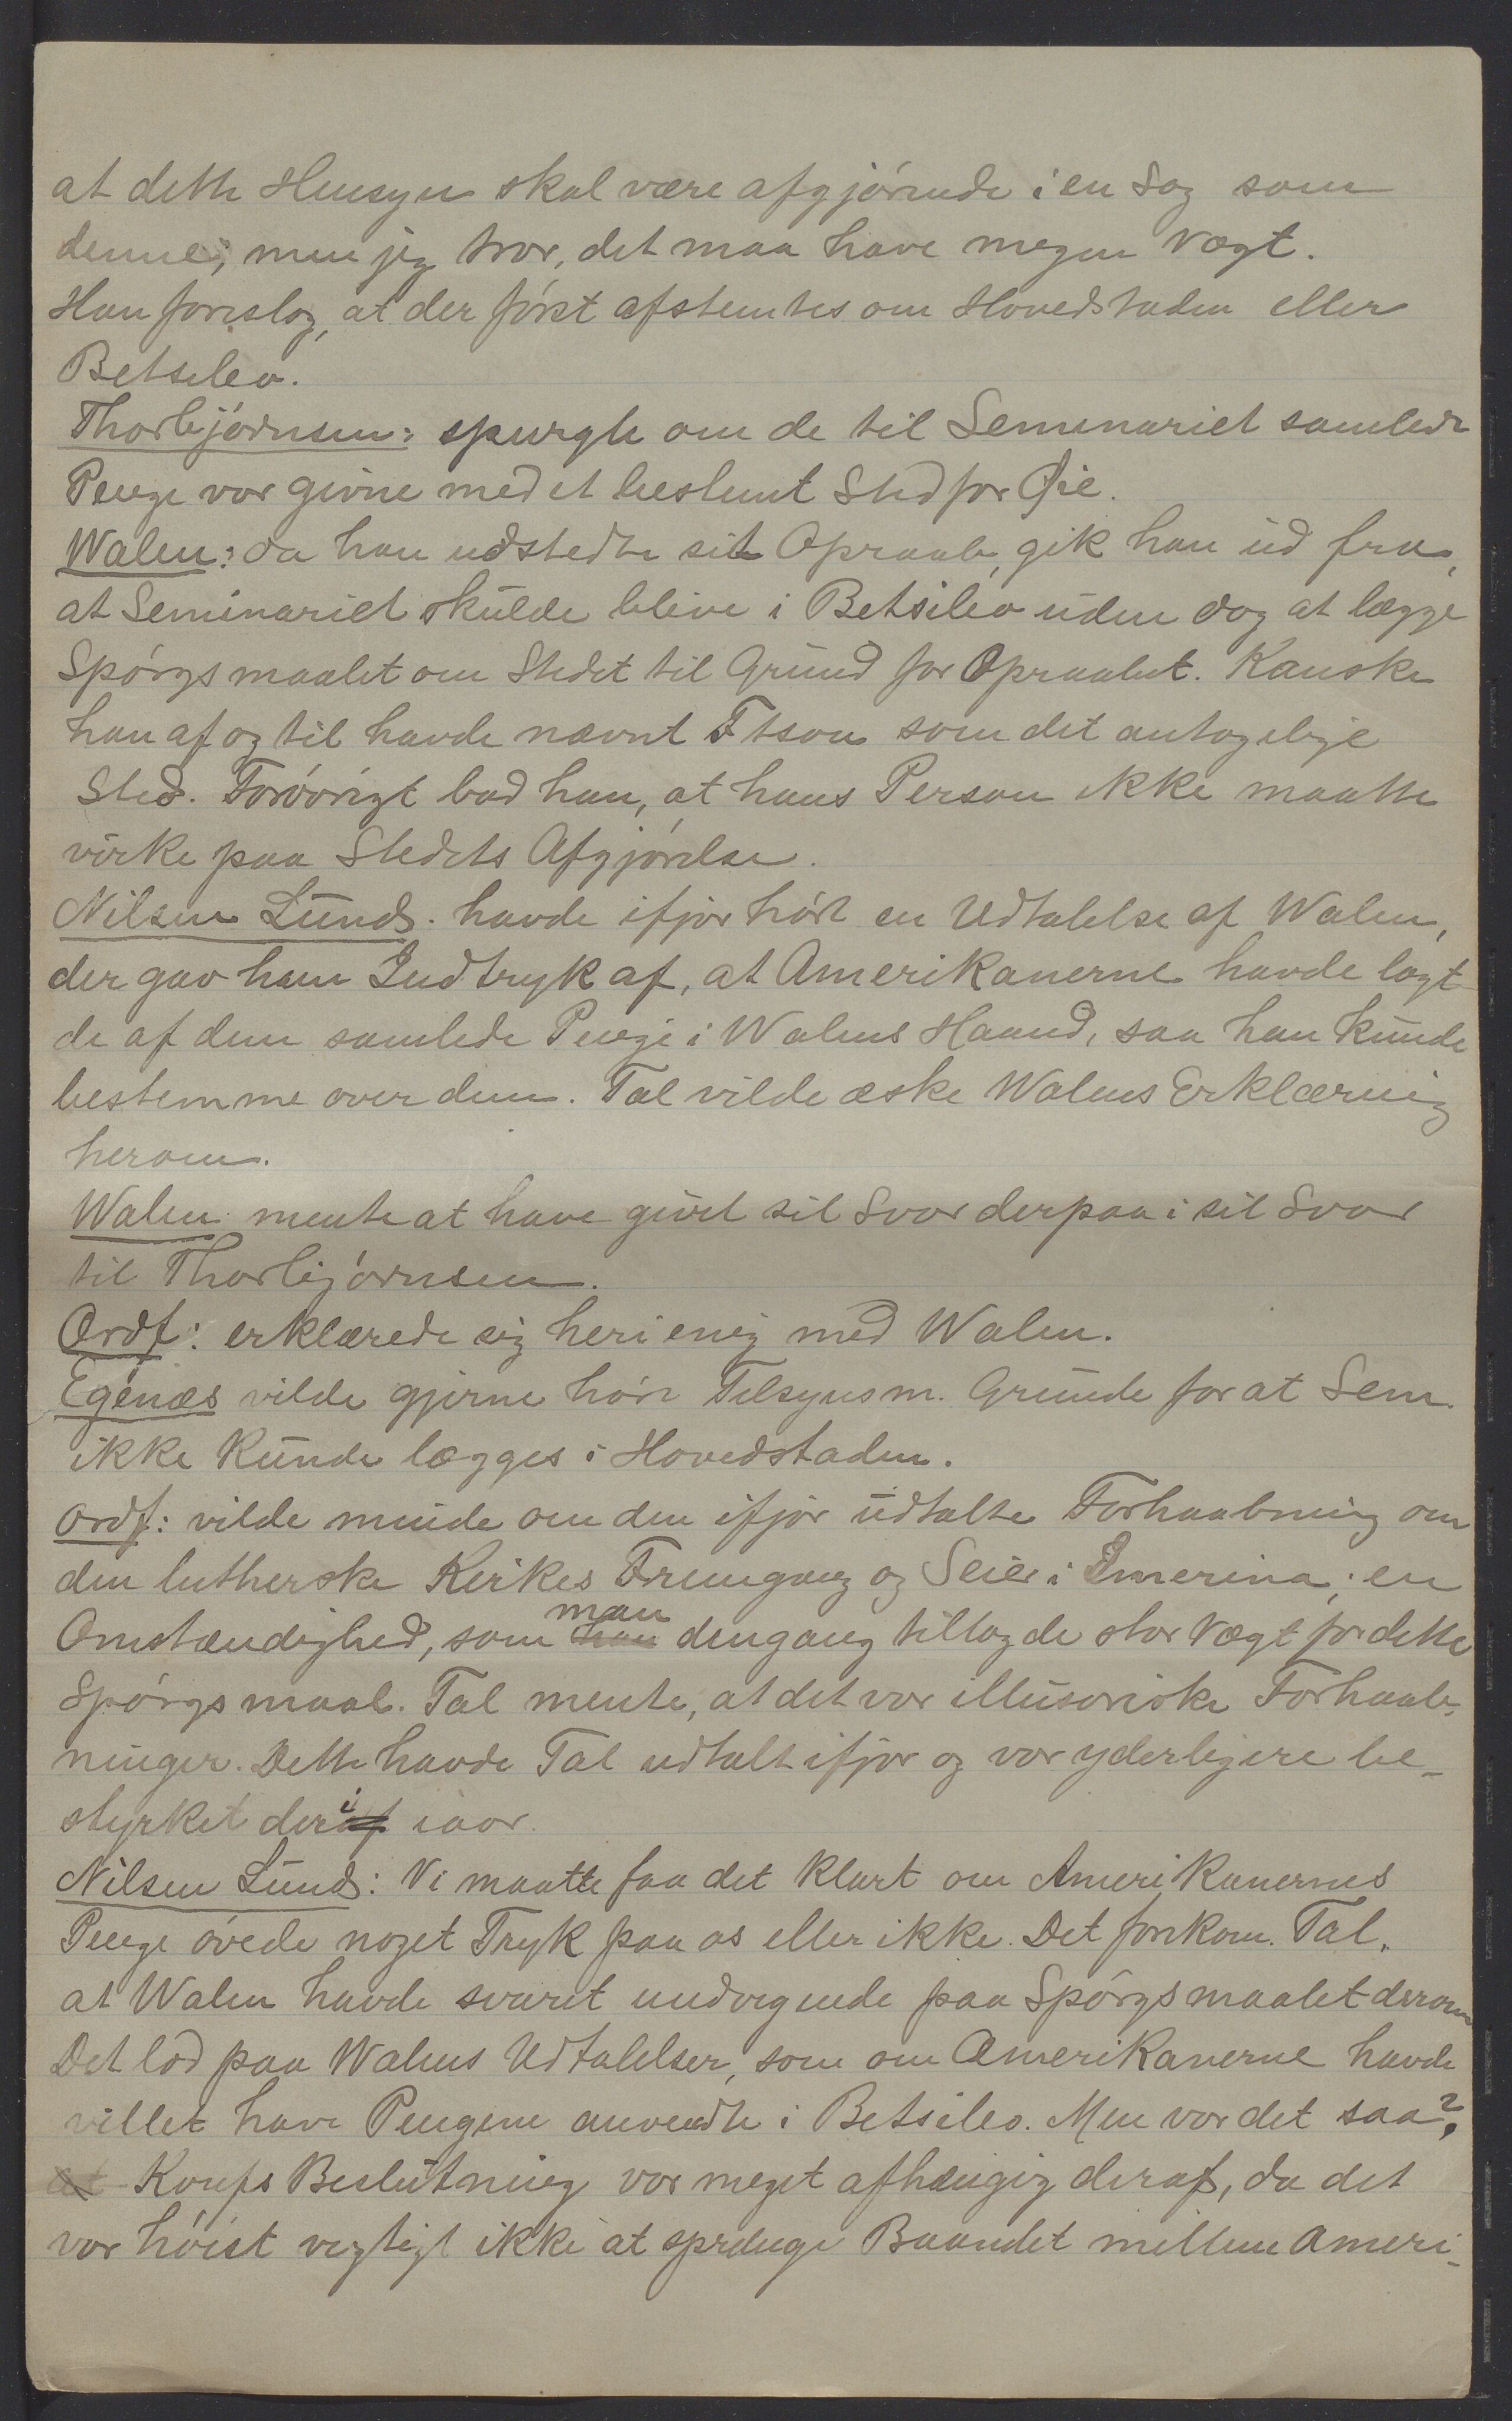 at dette Hensyn skal være afgjörende i en Sag som
denne; men jeg tror, det maa have megen Vægt.
Han foreslog, at der först afstemtes om Hovedstaden eller
Betsileo.
Thorbjörnsen: spurgte om de til Seminariet samlede
Penge var givne med et bestemt Sted for Øie.
Walen: da han udstedte sit Opraab, gik han ud fra,
at Seminariet skulde blive i Betsileo uden dog at lægge
Spörgsmaalet om Stedet til Grund for Opraabet. Kanske
han af og til havde nævnt Ftsoa som det antagelige
Sted. Forövrigt bad han, at hans Person ikke maatte
virke paa Stedets Afgjörelse.
Nilsen Lund: havde ifjor hört en Udtalelse af Walen,
der gav ham Indtryk af, at Amerikanerne havde lagt
de af dem samlede Penge i Walens Haand, saa han kunde
bestemme over dem. Tal vilde æske Walens Erklæring
herom.
Walen mente at have givet sit Svar derpaa i sit Svar
til Thorbjörnsen.
Ordf: erklærede sig heri enig med Walen.
Egenæs vilde gjerne höre Tilsynsm. Grunde for at Sem.
ikke kunde lægges i Hovedstaden.
Ordf: vilde minde om den ifjor udtalte Forhaabning om
den lutherske Kirkes Fremgang og Seier i Imerina; en
Omstændighed, som man dengang tillagde stor Vægt for dette
Spörgsmaal. Tal mente, at det var illusoriske Forhaab-
ninger. Dette havde Tal udtalt ifjor og var yderligere be-
styrket deri iaar.
Nilsen Lund: Vi maatte faa det klart om Amerikanernes
Penge övede noget Tryk paa os eller ikke. Det forekom Tal,
at Walen havde svaret undvigende paa Spörgsmaalet derom
Det löd paa Walens Udtalelser, som om Amerikanerne havde
villet have Pengene anvendte i Betsileo. Men var det saa?
at Konfs Beslutning var meget afhængig deraf, da det
var höist vigtigt ikke at sprenge Baandet mellem Ameri-